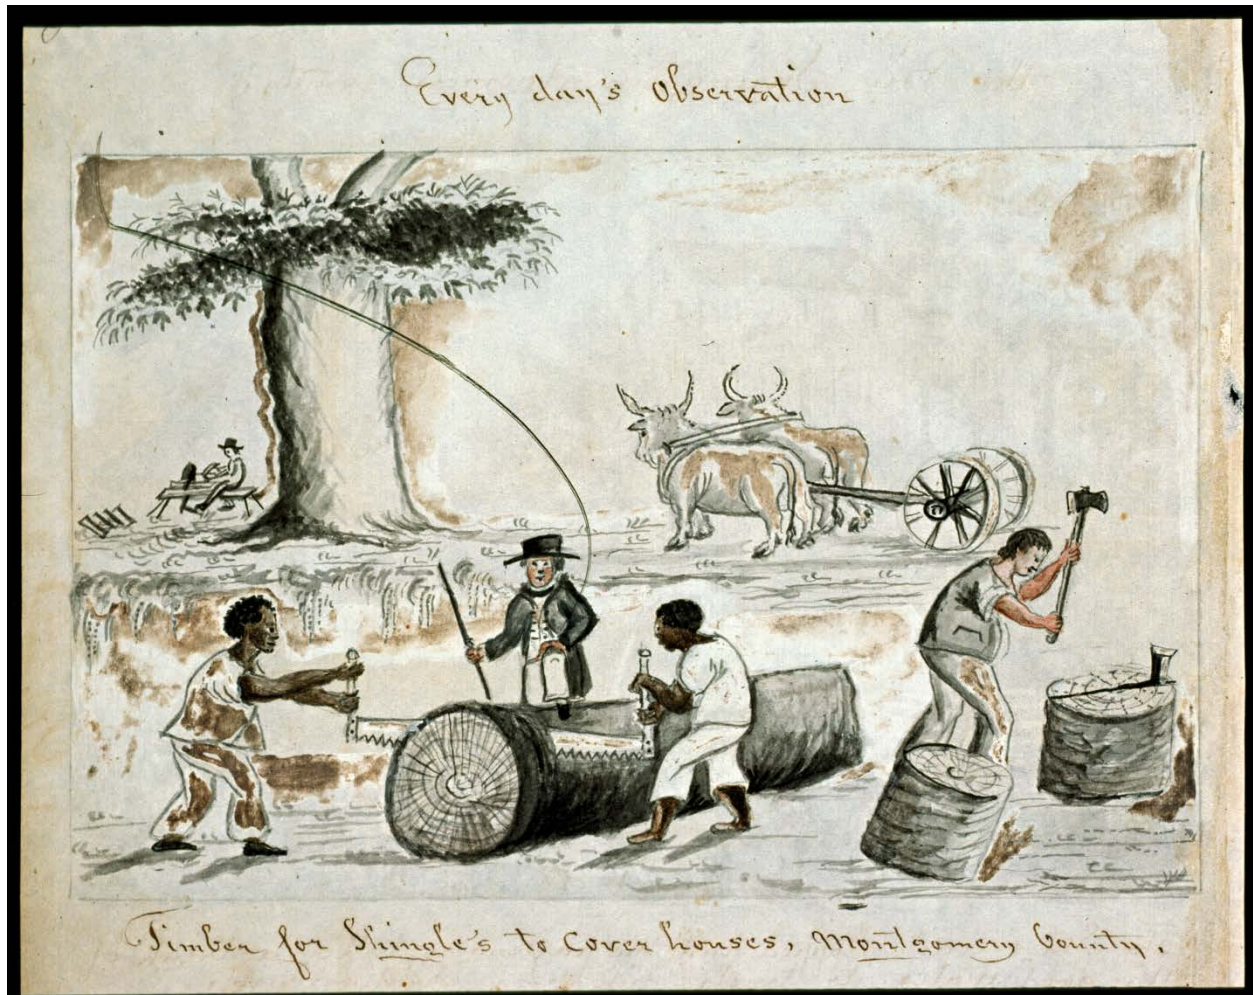 Every day's Observation
Timber for Shingle's to Cover houses, Montgomery County.